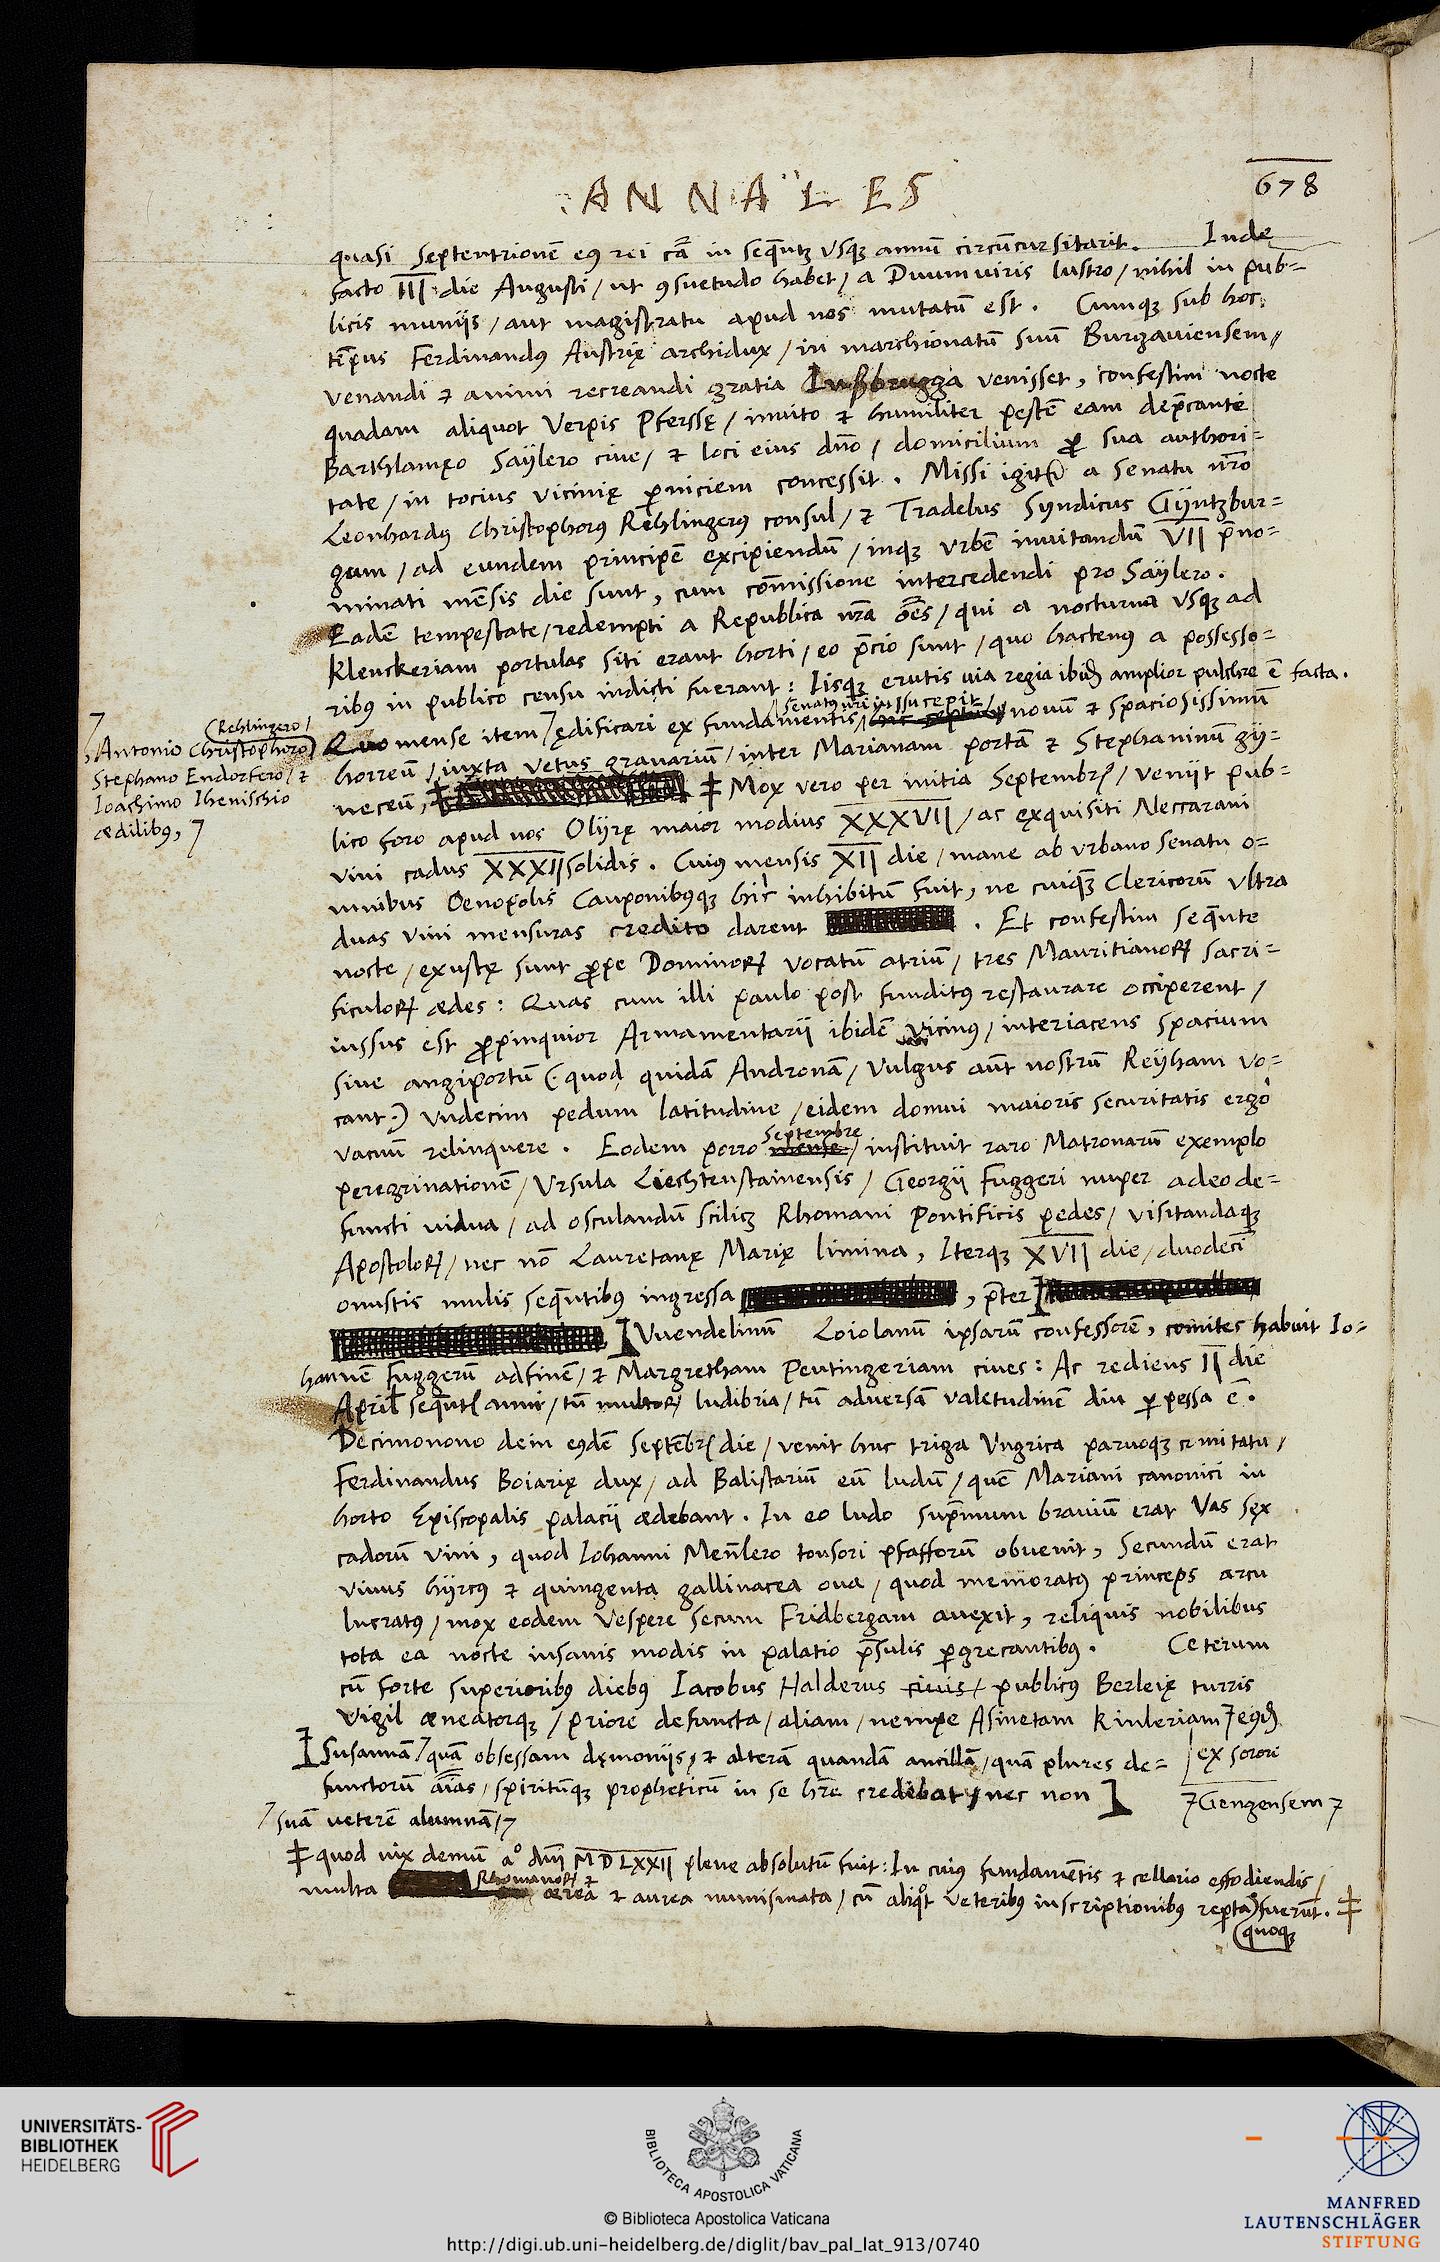 ANNALES
678
quasi septentrionē eꝰ rei cā in seqūtꝫ vsqꝫ annū circūcursitarit. Inde
facto III die Augusti / ut ꝯsuetudo habet / a Duumviris lustro / nihil in pub=
licis munijs / aut magistratu apud nos mutatū est . Cumqꝫ sub hoc
tēpus Ferdinandꝰ Austrię archidux / in marchionatū suū Burgaviensem /
venandi & animi recreandi gratia Inßbrugga venisset, confestim nocte
quadam aliquot Verpis Pferssę / invito & humiliter pestē eam dep̄cante
Barthlamęo Saÿlero cive / & loci eius dño / domicilium ꝓ sua authori=
tate / in tocius vicinię ꝑniciem concessit . Missi igitur a Senatu nr̄o
Leonhardꝰ Christophorꝰ Rehlingerꝰ consul / & Tradelus Syndicus Gÿntzbur=
gum / ad eundem principē excipiendū / inqꝫ vrbē invitandū VII p̄no=
minati mēsis die sunt, cum cōmissione intercedendi pro Saÿlero .
Eadē tempestate / redempti a Republica nr̄a oēs / qui a nocturna vsqꝫ ad
Klenckeriam portulas siti erant horti / eo p̄cio sunt / quo hactenꝰ a possesso=
ribꝰ in publico censu indicti fuerant : Iisqꝫ erutis via regia ibidē amplior pulchre ē facta .
senatꝰ nri iussu cepit
Quo mense item ⁊ ędificari ex fundamentis / novū & spaciosissimū
⁊ Antonio Christophoro
Rehlingero /
Stephano Endorfero / &
Ioachimo Ihenischio
ædilibꝰ, ⁊
horreū / iuxta vetus granariū / inter Marianam portā & Stephaninū gÿ=
neceū, ǂ Mox vero per initia Septembrꝭ / venijt pub=
lico foro apud nos Olÿrę maior modius XXXVII / ac exquisiti Neccarani
vini cadus XXXII solidis . Cuius mensis XII die / mane ab vrbano senatu o=
mnibus Oenopolis Cauponibꝰqꝫ hic inhibitū fuit, ne cuiqꝫ Clericorū vltra
duas vini mensuras credito darent . Et confestim seqūte
nocte / exustę sunt ꝓpe Dominoꝝ vocatū atriū / tres Mauritianoꝝ sacri=
ficuloꝝ ædes : Quas cum illi paulo post funditꝰ restaurare occiperent /
iussus est ꝓpinquior Armamentarij ibidē vicinus / interiacens spacium
sive angiportū (: quod quidā Andronā / Vulgus aūt nostrū Reÿham vo=
cant :) vndecim pedum latitudine / eidem domui maioris securitatis ergo
vacuū relinquere . Eodem porro mense / instituit raro Matronarū exemplo
Septembre
peregrinationē / Vrsula Liechtenstainensis / Georgij Fuggeri nuper adeo de=
functi vidua / ad osculandū scilicꝫ Rhomani Pontificis pedes / visitandaqꝫ
Apostoloꝝ / nec nō Lauretanę Marię limina, Iterqꝫ XVII die / duodecī
onustis mulis seqūtibꝰ ingressa , p̄ter
Vuendelinū Loiolanū ipsarū confessorē, comites habuit Io=
hannē Fuggerū adfinē / & Margretham Peutingeriam cives : Ac rediens II die
April seqūtꝭ anni / tū multoꝝ ludibria / tū adversā valetudinē diu ꝑpessa ē .
Decimonono dein eꝰdē Septēbrꝭ die / venit huc triga Vngrica parvoqꝫ comitatu /
Ferdinandus Boiarię dux / ad Balistariū eū ludū / quē Mariani canonici in
horto Episcopalis palacij ædebant . In eo ludo sup̄mum braviū erat Vas sex
cadorū vini, quod Iohanni Menlero tonsori pfafforū obvenit, Secundū erat
vivus hÿrcꝰ & quingenta gallinacea ova / quod memoratꝰ princeps arcu
lucratꝰ / mox eodem Vespere secum Fridbergam avexit, reliquis nobilibus
tota ea nocte insanis modis in palatio p̄sulis ꝑgrecantibꝰ . Ceterum
cū forte superioribꝰ diebꝰ Iacobus Halderus civis / publicꝰ Berleię turris
Vigil æneatorqꝫ / priore defuncta / aliam / nempe Asinetam Kinleriam ⁊ eꝰdē
ex sorori
Susannā ⁊ quā obsessam dęmonijs / & alterā quandā ancillā / quā plures de=
functorū aīas / spiritūqꝫ propheticū in se hr̄e credebat / nec non
⁊ Gengensem ⁊
⁊ suā veterē alumnā / ⁊
ǂ quod vix demū aº dñi MDLXXII plene absolutū fuit : In cuius fundamētis & cellario effodiendis /
multa Rhomanoꝝ & ærea & aurea numismata / cū aliqͦt veteribꝰ inscriptionibꝰ reperta fuerūt . ǂ
quoqꝫ
UNIVERSITÄTS-
BIBLIOTHEK
HEIDELBERG
BIBLIOTECA APOSTOLICA VATICANA
© Biblioteca Apostolica Vaticana
http://digi.ub.uni-heidelberg.de/diglit/bav_pal_lat_913/0740
MANFRED
LAUTENSCHLÄGER
STIFTUNG